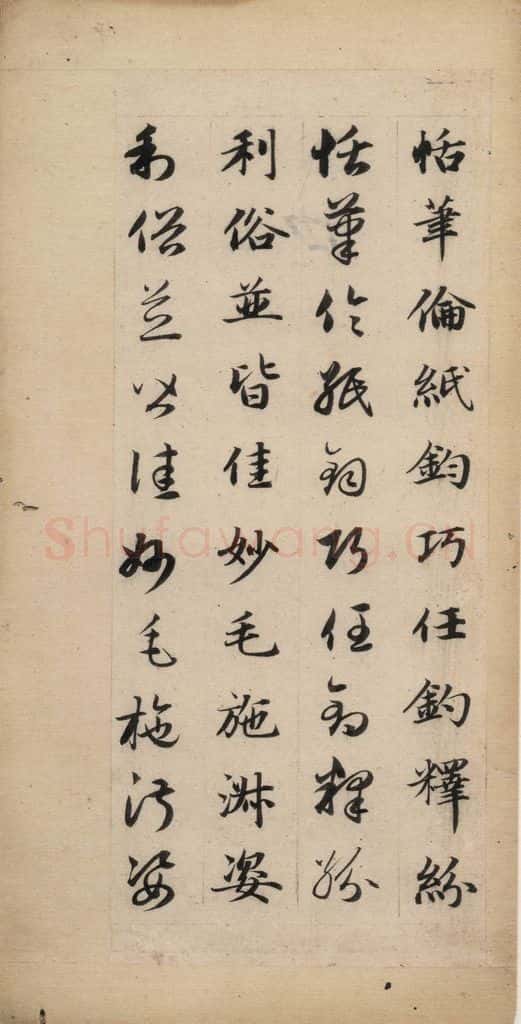 恬筆倫紙鈞巧任釣釋紛
恬筆倫紙鈞巧任釣釋紛
利俗並皆佳妙毛施淑姿
利俗並皆佳妙毛施淑姿
Shufawang.cn